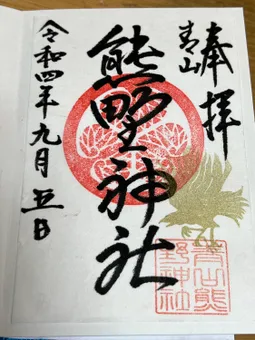 奉拝
青山
熊野神社
令和四年九月五日
青山熊
野神社